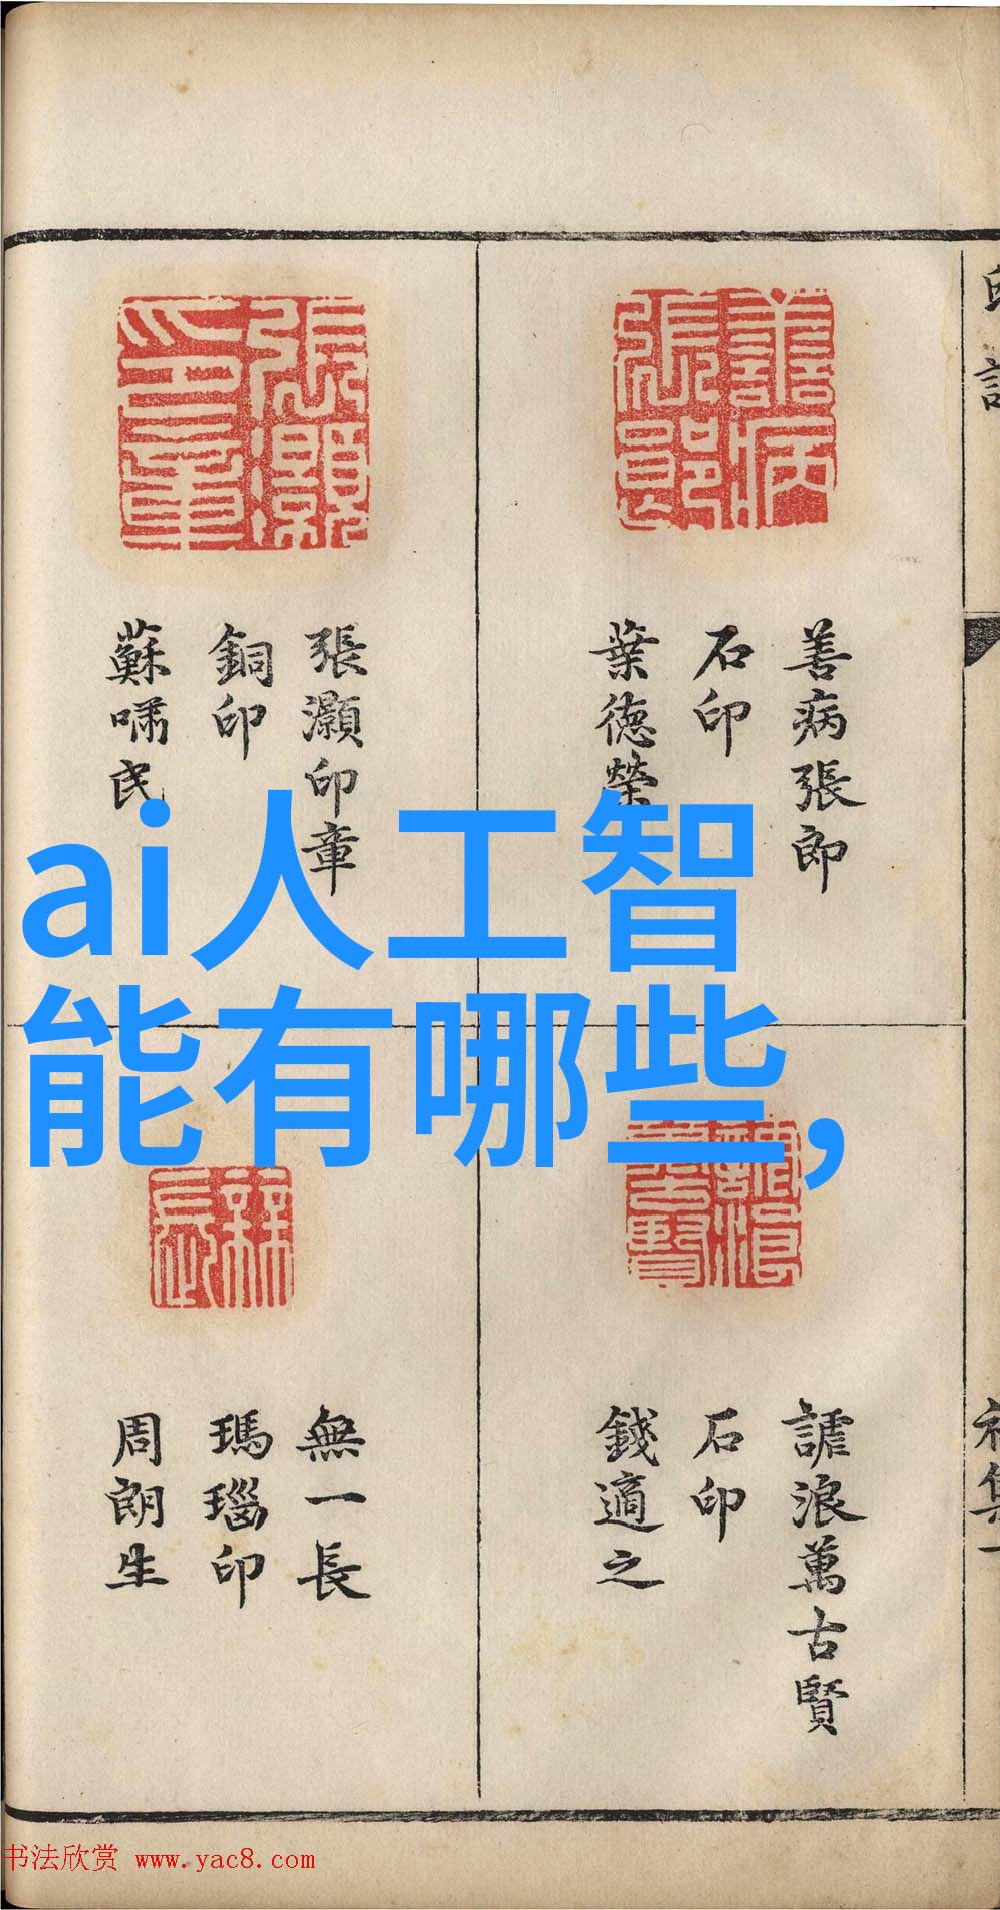 善病張郎
石印
葉德榮
張灝印章
銅印
蘇嘯民
ai人工智
能有哪些,
謔浪萬古賢
石印
錢適之
無一長
瑪瑙印
周朗生
书法欣赏 www.yac8.com